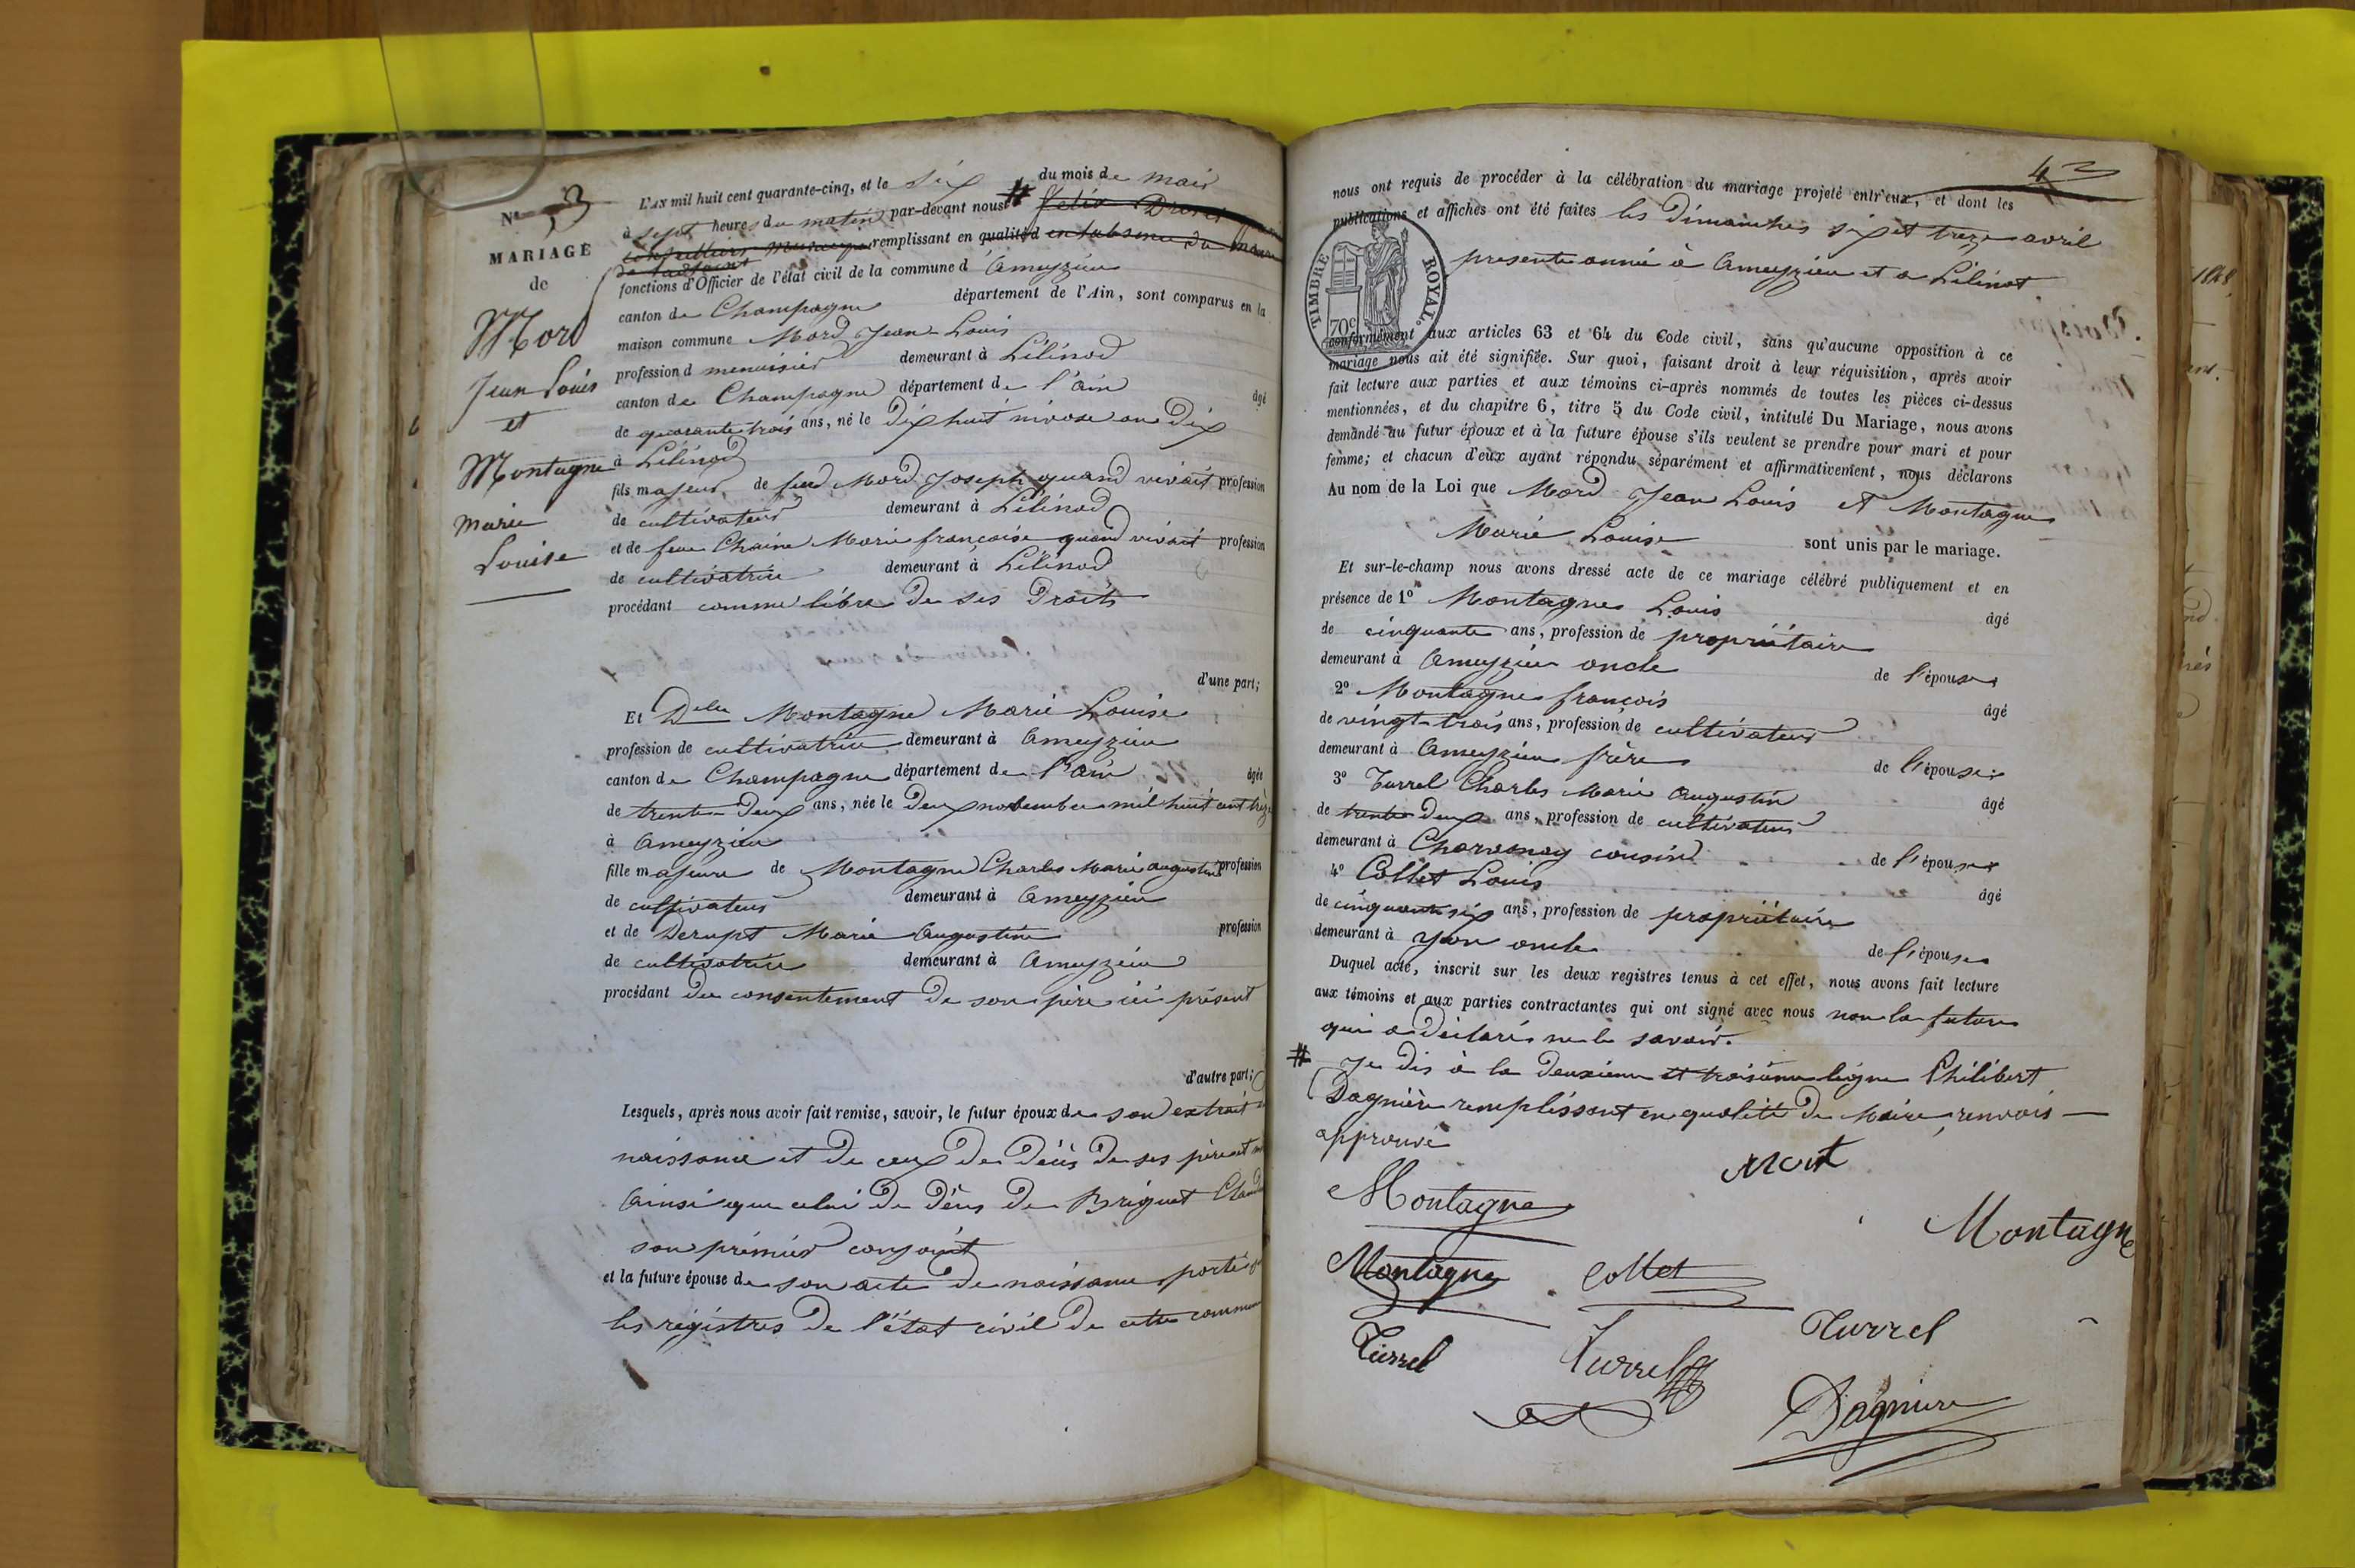 N° 3
MARIAGE
de
Mord
Jean Louis
et
Montagne
marie
Louise
L'AN mil huit cent quarante-cinq, et le Six du mois de mai
à sept heures du matin par-devant nous # félix Dreset
conseillier Municipa remplissant en qualité d en labsence du Maire
de l'adjoint
fonctions d'Officier de l'état civil de la commune d'Ameyzieu
canton de Champagne département de l'Ain, sont comparus en la
maison commune Mord Jean Louis
profession d menuisier demeurant à Lilinod
canton de Champagne département de l'ain âgé
de quarante trois ans, né le Dix huit nivose an Dix
à Lilinod
fils majeur de feu Mord Joseph quand vivait profession
de cultivateur demeurant à Lilinod
et de feue Chaine Marie françoise quand vivait profession
de cultivatrice demeurant à Lilinod
procédant comme libre de ses Droits
d'une part;
Et Dlle Montagne Marie Louise
profession de cultivatrice demeurant à Ameyzieu
canton de Champagne département de l'ain âgée
de trente Deux ans, née le Deux novembre mil huit cent treize
à Ameyzieu
fille majeure de Montagne Charles Marie augustin profession
de cultivateur demeurant à Ameyzieu
et de Derupt Marie Augustine profession
de cultivatrice demeurant à Ameyzieu
procédant du consentement de son père ici présent
d'autre part;
Lesquels, après nous avoir fait remise, savoir, le futur époux de son extrait
naissance et de ceux de décès de ses père et
Ainsi que celui de décès de Briguet
son prémier conjoint
et la future épouse de son acte de naissance porté
les régistres de l'état civil de cette commune
43
nous ont requis de procéder à la célébration du mariage projeté entr'eux, et dont les
publications et affiches ont été faites les Dimanches six et treize avril
presente année à Ameyzieu et a Lilinot
TIMBRE ROYAL.
70c
conformément aux articles 63 et 64 du Code civil, sans qu'aucune opposition à ce
mariage nous ait été signifiée. Sur quoi, faisant droit à leur réquisition, après avoir
fait lecture aux parties et aux témoins ci-après nommés de toutes les pièces ci-dessus
mentionnées, et du chapitre 6, titre 5 du Code civil, intitulé Du Mariage, nous avons
demandé au futur époux et à la future épouse s'ils veulent se prendre pour mari et pour
femme; et chacun d'eux ayant répondu séparément et affirmativement, nous déclarons
Au nom de la Loi que Mord Jean Louis et Montagne
Marie Louise sont unis par le mariage.
Et sur-le-champ nous avons dressé acte de ce mariage célébré publiquement et en
présence de 1° Montagne Louis âgé
de cinquante ans, profession de propriétaire
demeurant à Ameyzieu oncle de l'épouse
2° Montagne françois âgé
de vingt-trois ans, profession de cultivateur
demeurant à Ameyzieu frère de l'épouse
3° Turrel Charles Marie Augustin âgé
de trente Deux ans, profession de cultivateur
demeurant à Charvonay cousin de l'épouse
4° Collet Louis âgé
de cinquante six ans, profession de propriétaire
demeurant à yon oncle de l'épouse
Duquel acte, inscrit sur les deux registres tenus à cet effet, nous avons fait lecture
aux témoins et aux parties contractantes qui ont signé avec nous non la future
qui a déclaré ne le savoir.
# Je dis à la Deuxieme et troisième ligne Philibert
Dagnière remplissant en qualité de Maire, renvois
approuvé
Mort
Montagne
Montagne
Montagne
Collet
Turrel
Turrel
Turrel
Dagniere